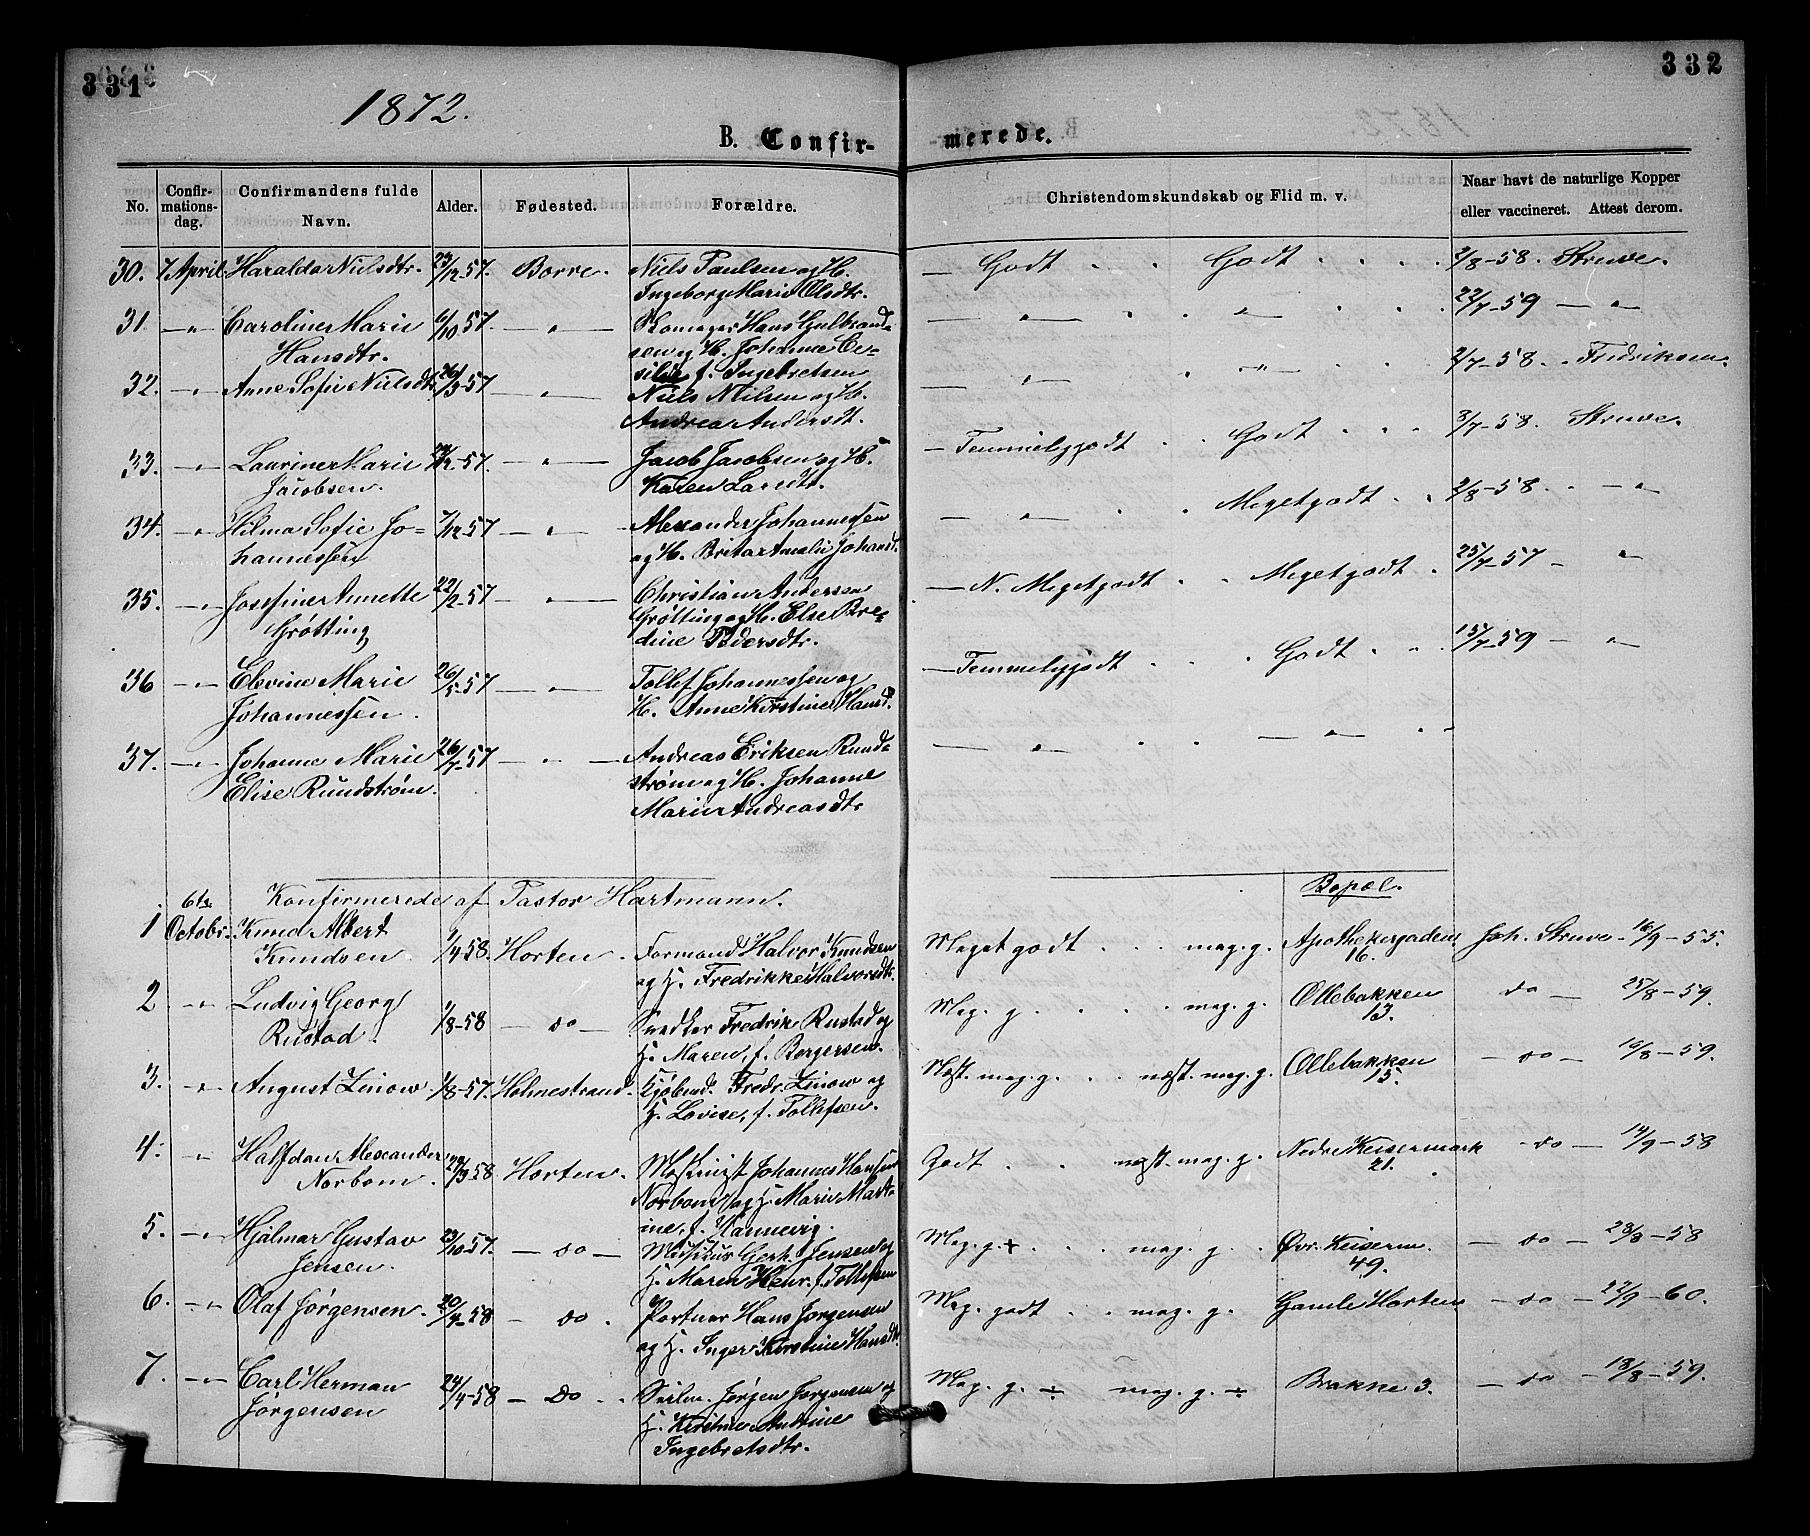 331
332
1872.
B. Confir-
merede.
No.
Confir-
mations-
dag.
Confirmandens fulde
Navn.
Alder.
Fødested.
Forældre.
Christendomskundskab og Flid m. v.
Naar havt de naturlige Kopper
eller vaccineret. Attest derom.
30. 7 April Haralda Nielsdtr. 23/12-57. Borre. Niels Paulsen og H. — Godt . . Godt . . . . 2/8-58. Struve.
Ingeborg Marie Olsdtr.
31. —„— Caroline Marie 6/10 57. —„— Hans Gulbrand- — „ — . . „ . . . 22/7-59 — „
Hansdtr. sen og H. Johanne Ce-
32. —„— Anne Sofie Nielsdtr 26/3-57 —„— silie f. Ingebretsen — „ — . „ . . . 2/7-58. . Fredriksen.
Niels Nilsen og H.
Andrea Andersdt.
33. —„— Laurine Marie /12-57. —„— Jacob Jacobsen og H. — Temmeliggodt . . Godt . . . 3/7-58. Struve.
Jacobsen. Karen Larsdtr.
34. —„ Hilma Sofie Jo- 7/12-57 —„— Alexander Johannessen — „ — . . Megetgodt . . 2/8-58. . — „
hannessen og H. Brita Amalie Johansd.
35. —„— Josefine Annette 22/2-57 —„— Christian Andersen — N. Megetgodt . . Megetgodt . 25/7-57 — „
Grøtting Grøtting og H. Else Bre-
dine Pedersdtr.
36 —„— Elevine Marie 26/5-57 —„— Tollef Johannessen og — Temmeliggodt . . . Godt . . . 15/7-59 — „
Johannessen. H. Anne Kirstine Hansd.
37. —„— Johanne Marie 26/7-57 — „ — Andreas Eriksen Rund- — „ — . . — „ — . .
Elise Rundstrøm. strøm og H. Johanne
Marie Andreasdtr
Konfirmerede af Pastor Hartmann. Bopæl.
6te
1 Octobr. Knud Albert 1/4-58. Horten. Formand Halvor Knudsen Meget godt . . . meg. g. Apothekergaden Joh. Struve - 16/9-55.
Knudsen. og H. Fredrikke Halvorsdtr. 16.
2 —„ Ludvig Georg 1/8-58 — do — Snedker Fredrik Rustad og Meg. g. . . . . meg. g. Ollebakken do — 25/8-59.
Rustad. H. Maren, f. Borgersen. 13.
3. „ August Linow 1/8-57. Holmestrand. Kjøbmd. Fredr. Linow og Næst. meg. g. . . næst. meg. g. Ollebakken — do — 16/8-59.
H. Lovise, f. Tollefsen. 13.
4. „ Halfdan Alexander /9-58 Horten. Maskinist Johannes Hansen Godt . . næst. meg. g. Nedre Keisermark — do — 14/9-58
Norbom. Norbom og H. Marie Mart- 21.
ine, f. Wannevig.
5. —„— Hjalmar Gustav 23/10-57. — do — Musikus Gerh. Jensen og Meg. g. + . . . meg. g. . Øvr. Keiserm. — do — 28/8-58
Jensen. H. Maren Henr. f. Tollefsen 49.
6. —„— Olaf Jørgensen. 20/4-58 — do . Portner Hans Jørgensen Meg. godt . . meg. g. Gamle Horten — do — 22/9-60.
og H. Inger Kirstine Hansdtr.
7. —„— Carl Herman 24/4-58 — do . . Seilm. Jørgen Jørgensen og Meg. g. ÷ meg. g. ÷ Brakke 3. — do — 13/8-59.
Jørgensen H. Kirstine Andrine
Ingebretsdtr.